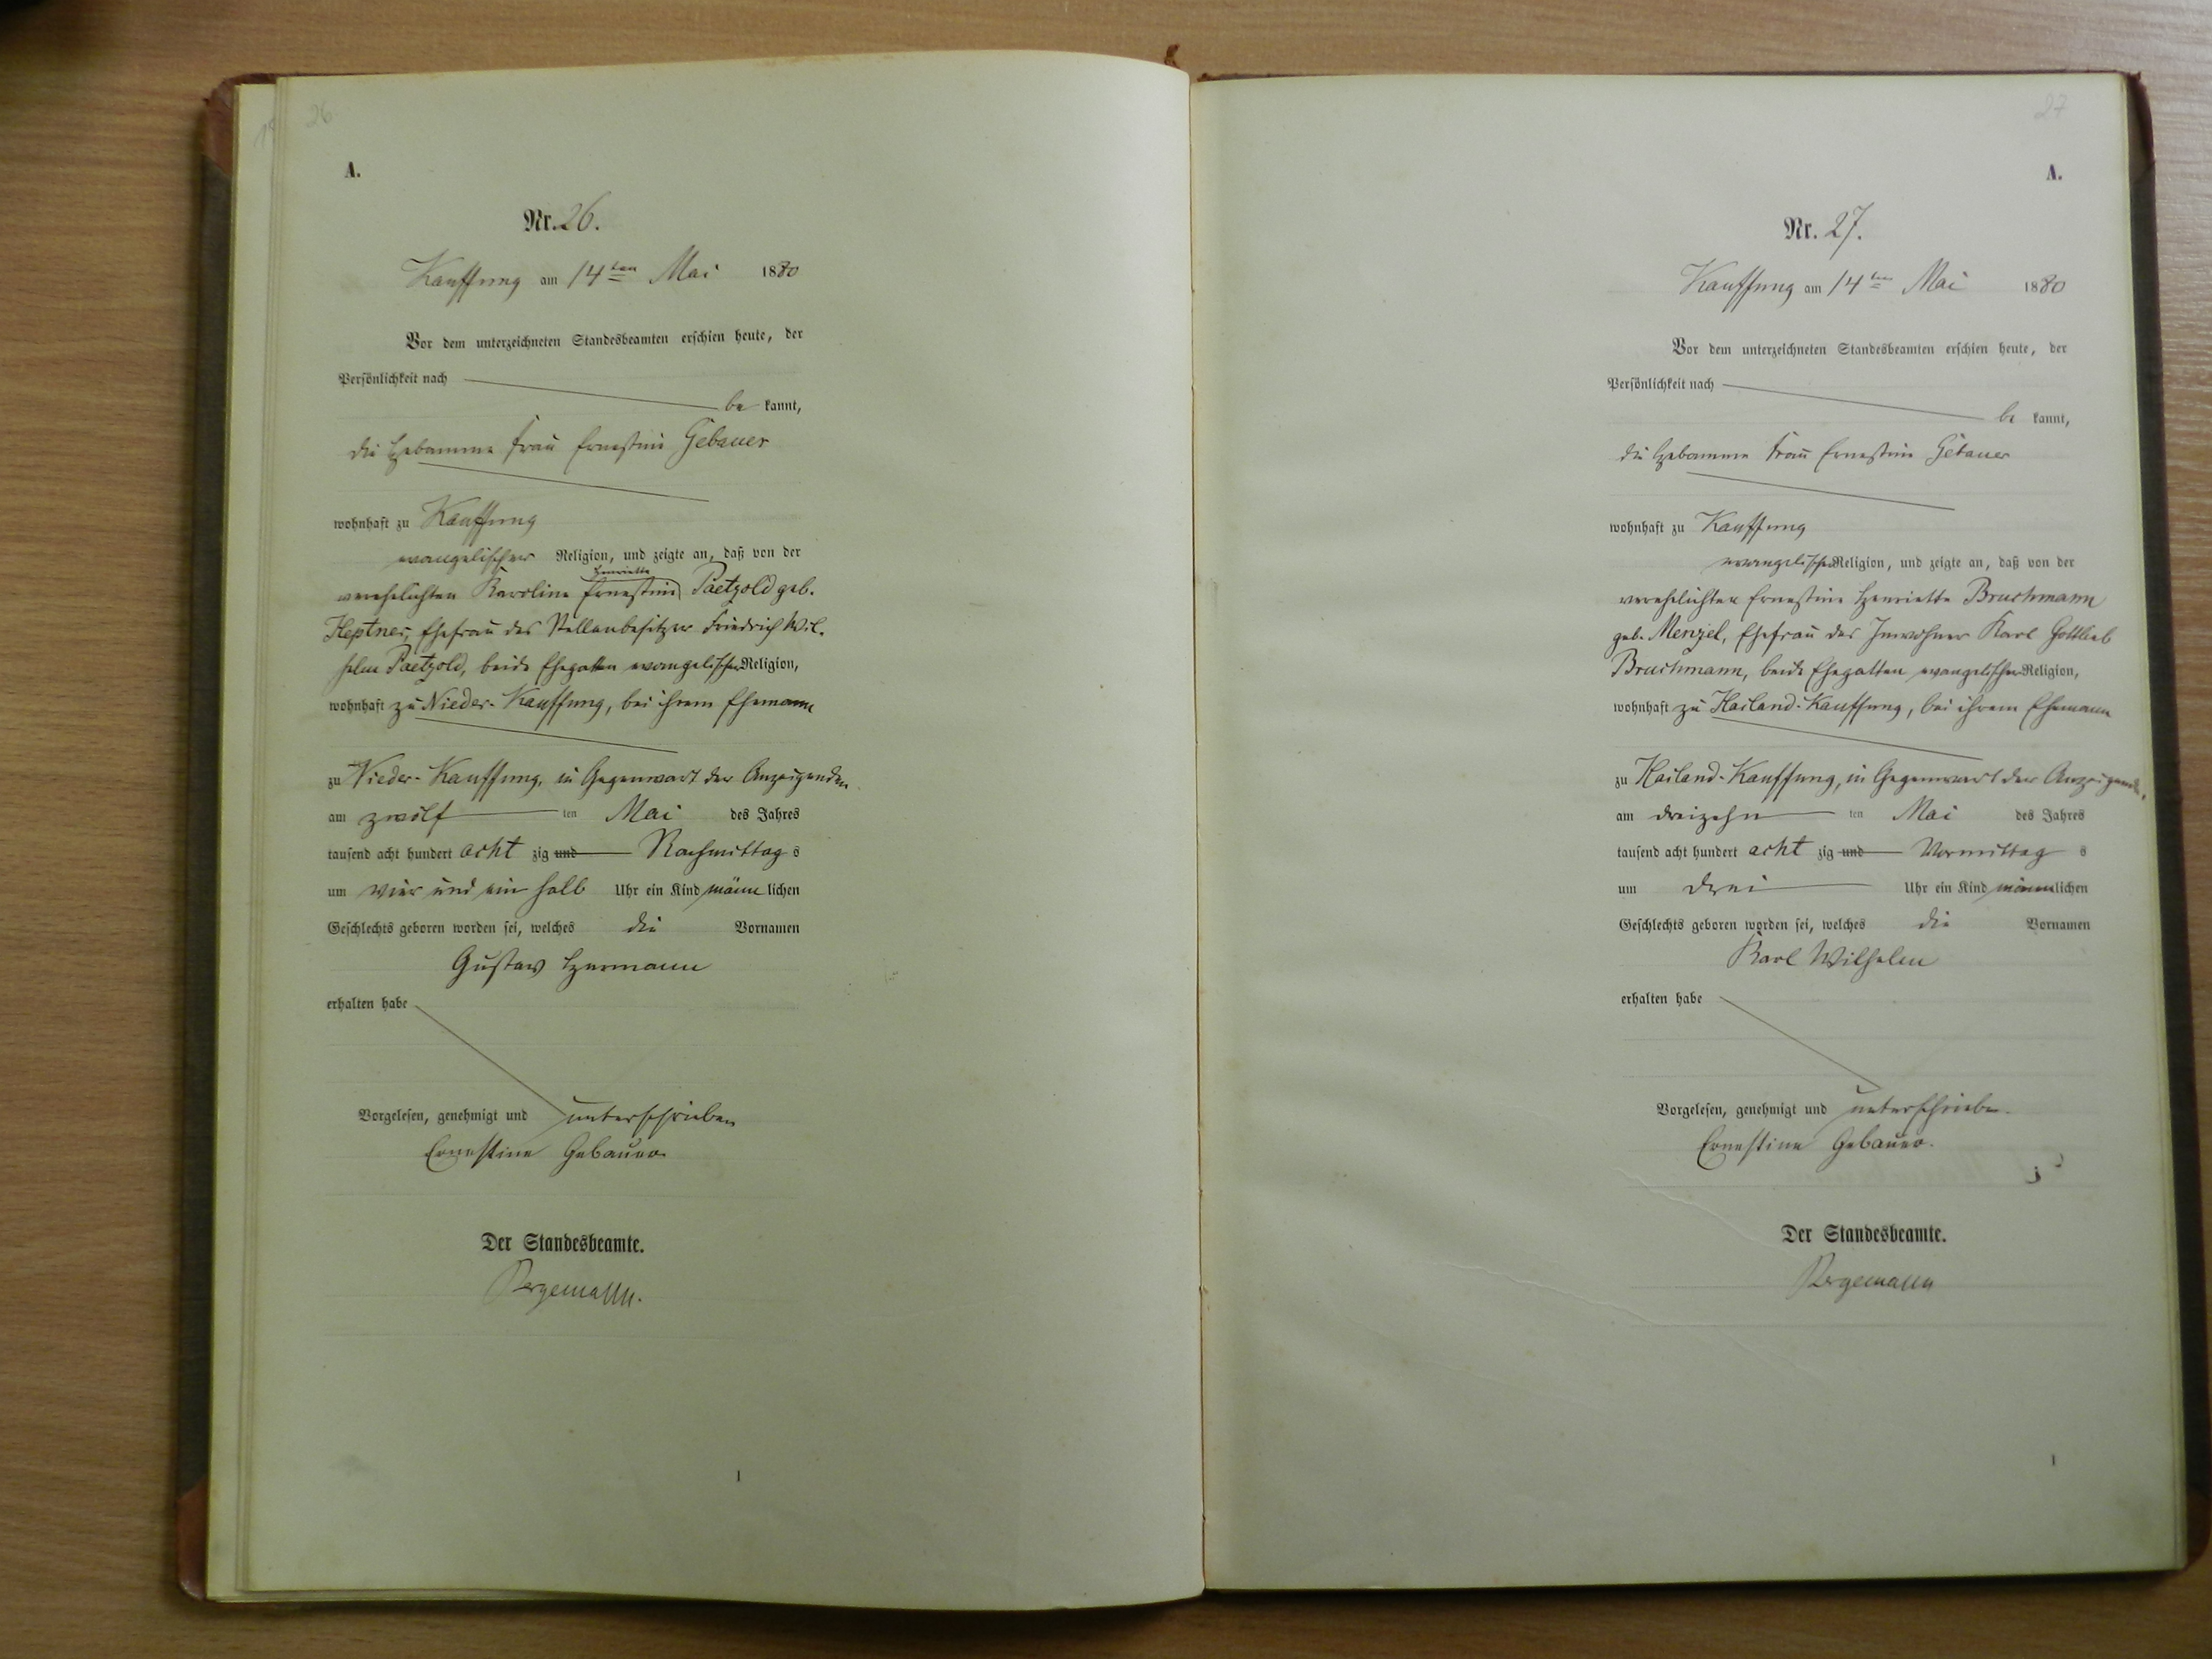 26
A.
Nr. 26.
Kauffung am 14ten Mai 1880
Vor dem unterzeichneten Standesbeamten erschien heute, der
Persönlichkeit nach
be kannt,
die Hebamme Frau Ernestine Gebauer
wohnhaft zu Kauffung
evangelischer Religion, und zeigte an, daß von der
Henriette
verehelichten Karoline Ernestine Paetzold geb.
Heptner, Ehefrau des Stellenbesitzer Friedrich Wil.
helm Paetzold, beide Ehegatten evangelischer Religion,
wohnhaft zu Nieder-Kauffung, bei ihrem Ehemann
zu Nieder-Kauffung, in Gegenwart der Anzeigenden
am zwölf ten Mai des Jahres
tausend acht hundert acht zig und Nachmittag s
um vier und ein halb Uhr ein Kind männ lichen
Geschlechts geboren worden sei, welches die Vornamen
Gustav Hermann
erhalten habe
Vorgelesen, genehmigt und unterschrieben
Ernestine Gebauer
Der Standesbeamte.
Bergemann.
1
27
A.
Nr. 27.
Kauffung am 14ten Mai 1880
Vor dem unterzeichneten Standesbeamten erschien heute, der
Persönlichkeit nach
be kannt,
die Hebamme Frau Ernestine Gebauer
wohnhaft zu Kauffung
evangelischer Religion, und zeigte an, daß von der
verehelichten Ernestine Henriette Bruchmann
geb. Menzel, Ehefrau des Inwohner Karl Gottlieb
Bruchmann, beide Ehegatten evangelischer Religion,
wohnhaft zu Hailand-Kauffung, bei ihrem Ehemann
zu Hailand-Kauffung, in Gegenwart der Anzeigend.
am dreizehn ten Mai des Jahres
tausend acht hundert acht zig und Vormittag s
um drei Uhr ein Kind männlichen
Geschlechts geboren worden sei, welches die Vornamen
Karl Wilhelm
erhalten habe
Vorgelesen, genehmigt und unterschrieben.
Ernestine Gebauer.
Der Standesbeamte.
Bergemann
1